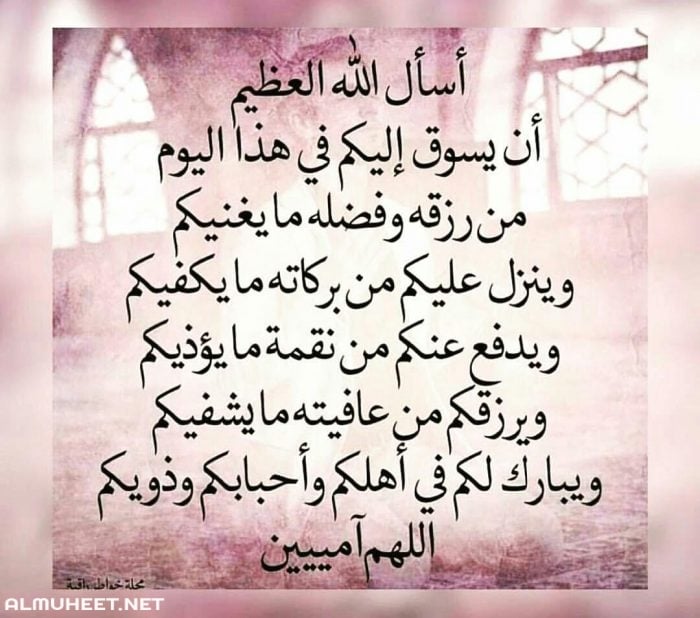 أسأل الله العظيم
أن يسوق إليكم في هذا اليوم
من رزقه وفضله ما يغنيكم
وينزل عليكم من بركاته ما يكفيكم
ويدفع عنكم من نقمة ما يؤذيكم
ويرزقكم من عافيته ما يشفيكم
ويبارك لكم في أهلكم وأحبابكم وذويكم
اللهم آمييين
مجلة خواطر راقية
ALMUHEET.NET